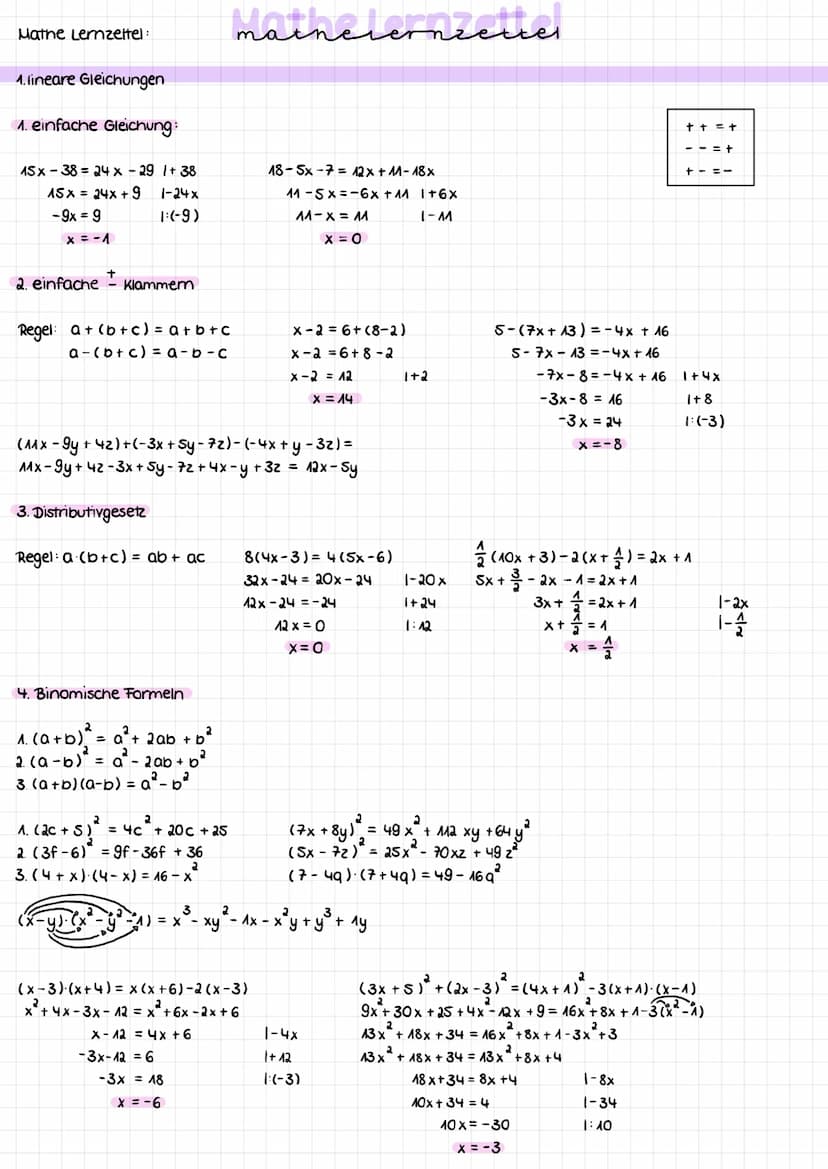 Mathe Lernzettel:
Mathe Lernzettel
mathelernzettel
1. lineare Gleichungen
1. einfache Gleichung:
+ + = +
- - = +
+ - = -
15x - 38 = 24x - 29 |+ 38
15x = 24x + 9 |-24x
-9x = 9 |:(-9)
x = -1
18 - 5x - 7 = 12x + 11 - 18x
11 - 5x = -6x + 11 |+6x
11 - x = 11 |-11
x = 0
2. einfache +/- Klammern
Regel: a + (b + c) = a + b + c
a - (b + c) = a - b - c
x - 2 = 6 + (8 - 2)
x - 2 = 6 + 8 - 2
x - 2 = 12 |+2
x = 14
5 - (7x + 13) = -4x + 16
5 - 7x - 13 = -4x + 16
-7x - 8 = -4x + 16 |+4x
-3x - 8 = 16 |+8
-3x = 24 |:(-3)
x = -8
(11x - 9y + 4z) + (-3x + 5y - 7z) - (-4x + y - 3z) =
11x - 9y + 4z - 3x + 5y - 7z + 4x - y + 3z = 12x - 5y
3. Distributivgesetz
Regel: a·(b+c) = ab + ac
8(4x - 3) = 4(5x - 6)
32x - 24 = 20x - 24 |-20x
12x - 24 = -24 |+24
12x = 0 |:12
x = 0
1/2 (10x + 3) - 2(x + 1/2) = 2x + 1
5x + 3/2 - 2x - 1 = 2x + 1
3x + 1/2 = 2x + 1 |-2x
x + 1/2 = 1 |-1/2
x = 1/2
4. Binomische Formeln
1. (a+b)² = a² + 2ab + b²
2. (a-b)² = a² - 2ab + b²
3 (a+b)(a-b) = a² - b²
1. (2c + 5)² = 4c² + 20c + 25
2 (3f - 6)² = 9f - 36f + 36
3. (4 + x)·(4 - x) = 16 - x²
(7x + 8y)² = 49x² + 112 xy + 64y²
(5x - 7z)² = 25x² - 70xz + 49z²
(7 - 4q)·(7 + 4q) = 49 - 16q²
(x - y)·(x² - y² - 1) = x³ - xy² - 1x - x²y + y³ + 1y
(x - 3)·(x + 4) = x(x + 6) - 2(x - 3)
x² + 4x - 3x - 12 = x² + 6x - 2x + 6
x - 12 = 4x + 6 |-4x
-3x - 12 = 6 |+12
-3x = 18 |:(-3)
x = -6
(3x + 5)² + (2x - 3)² = (4x + 1)² - 3(x + 1)·(x - 1)
9x² + 30x + 25 + 4x² - 12x + 9 = 16x² + 8x + 1 - 3(x² - 1)
13x² + 18x + 34 = 16x² + 8x + 1 - 3x² + 3
13x² + 18x + 34 = 13x² + 8x + 4
18x + 34 = 8x + 4 |-8x
10x + 34 = 4 |-34
10x = -30 |:10
x = -3